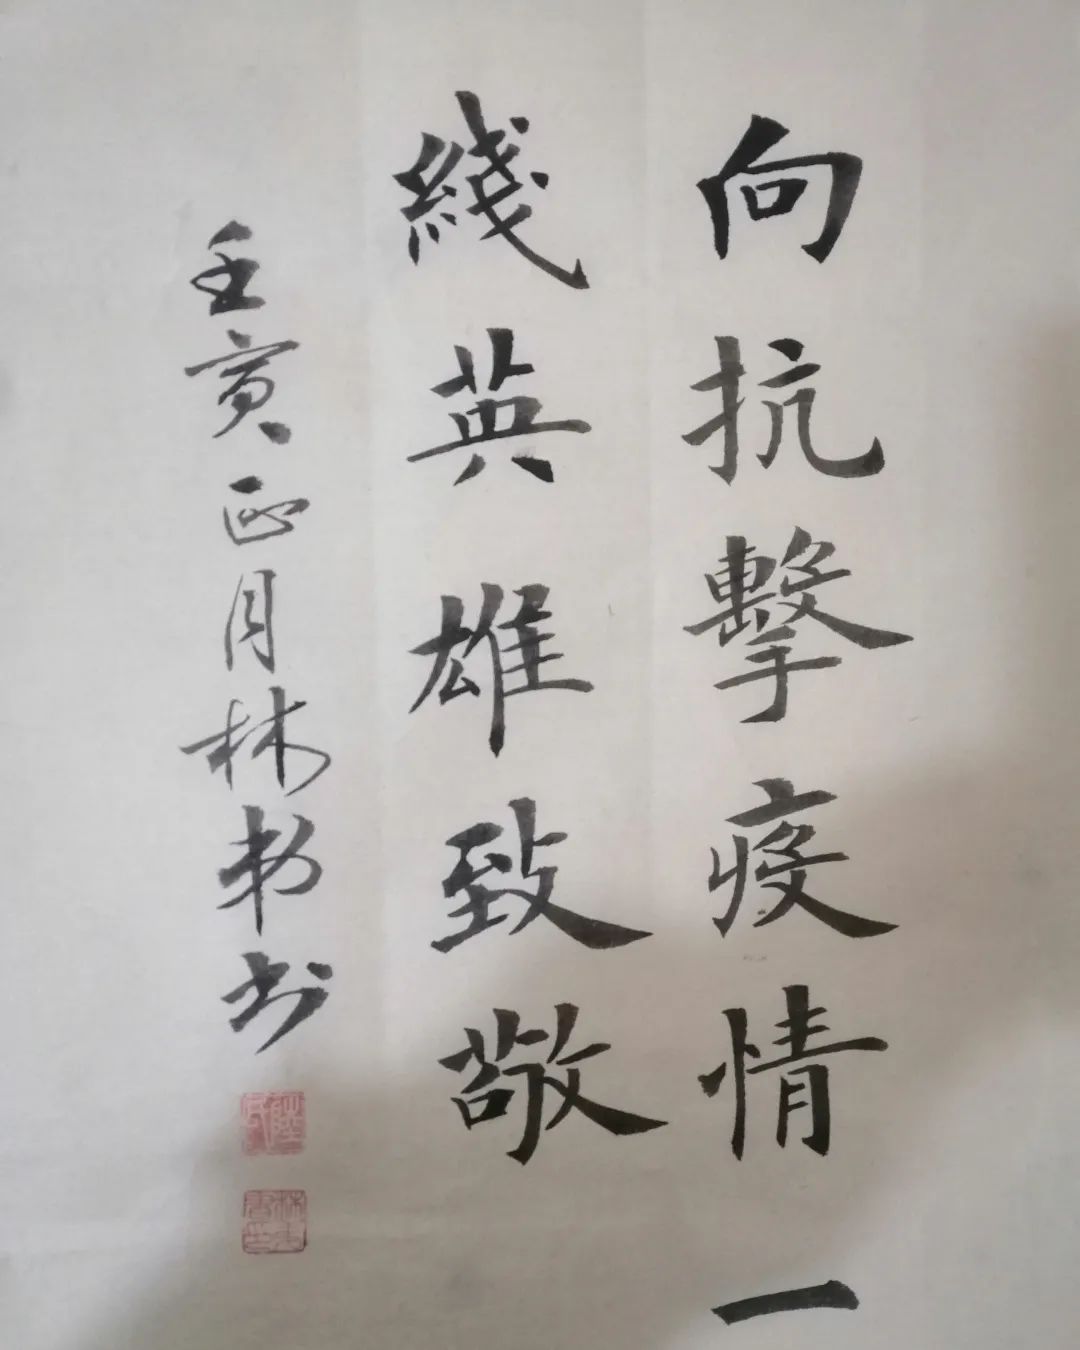 向抗擊疫情一
綫英雄致敬
壬寅正月林韧书